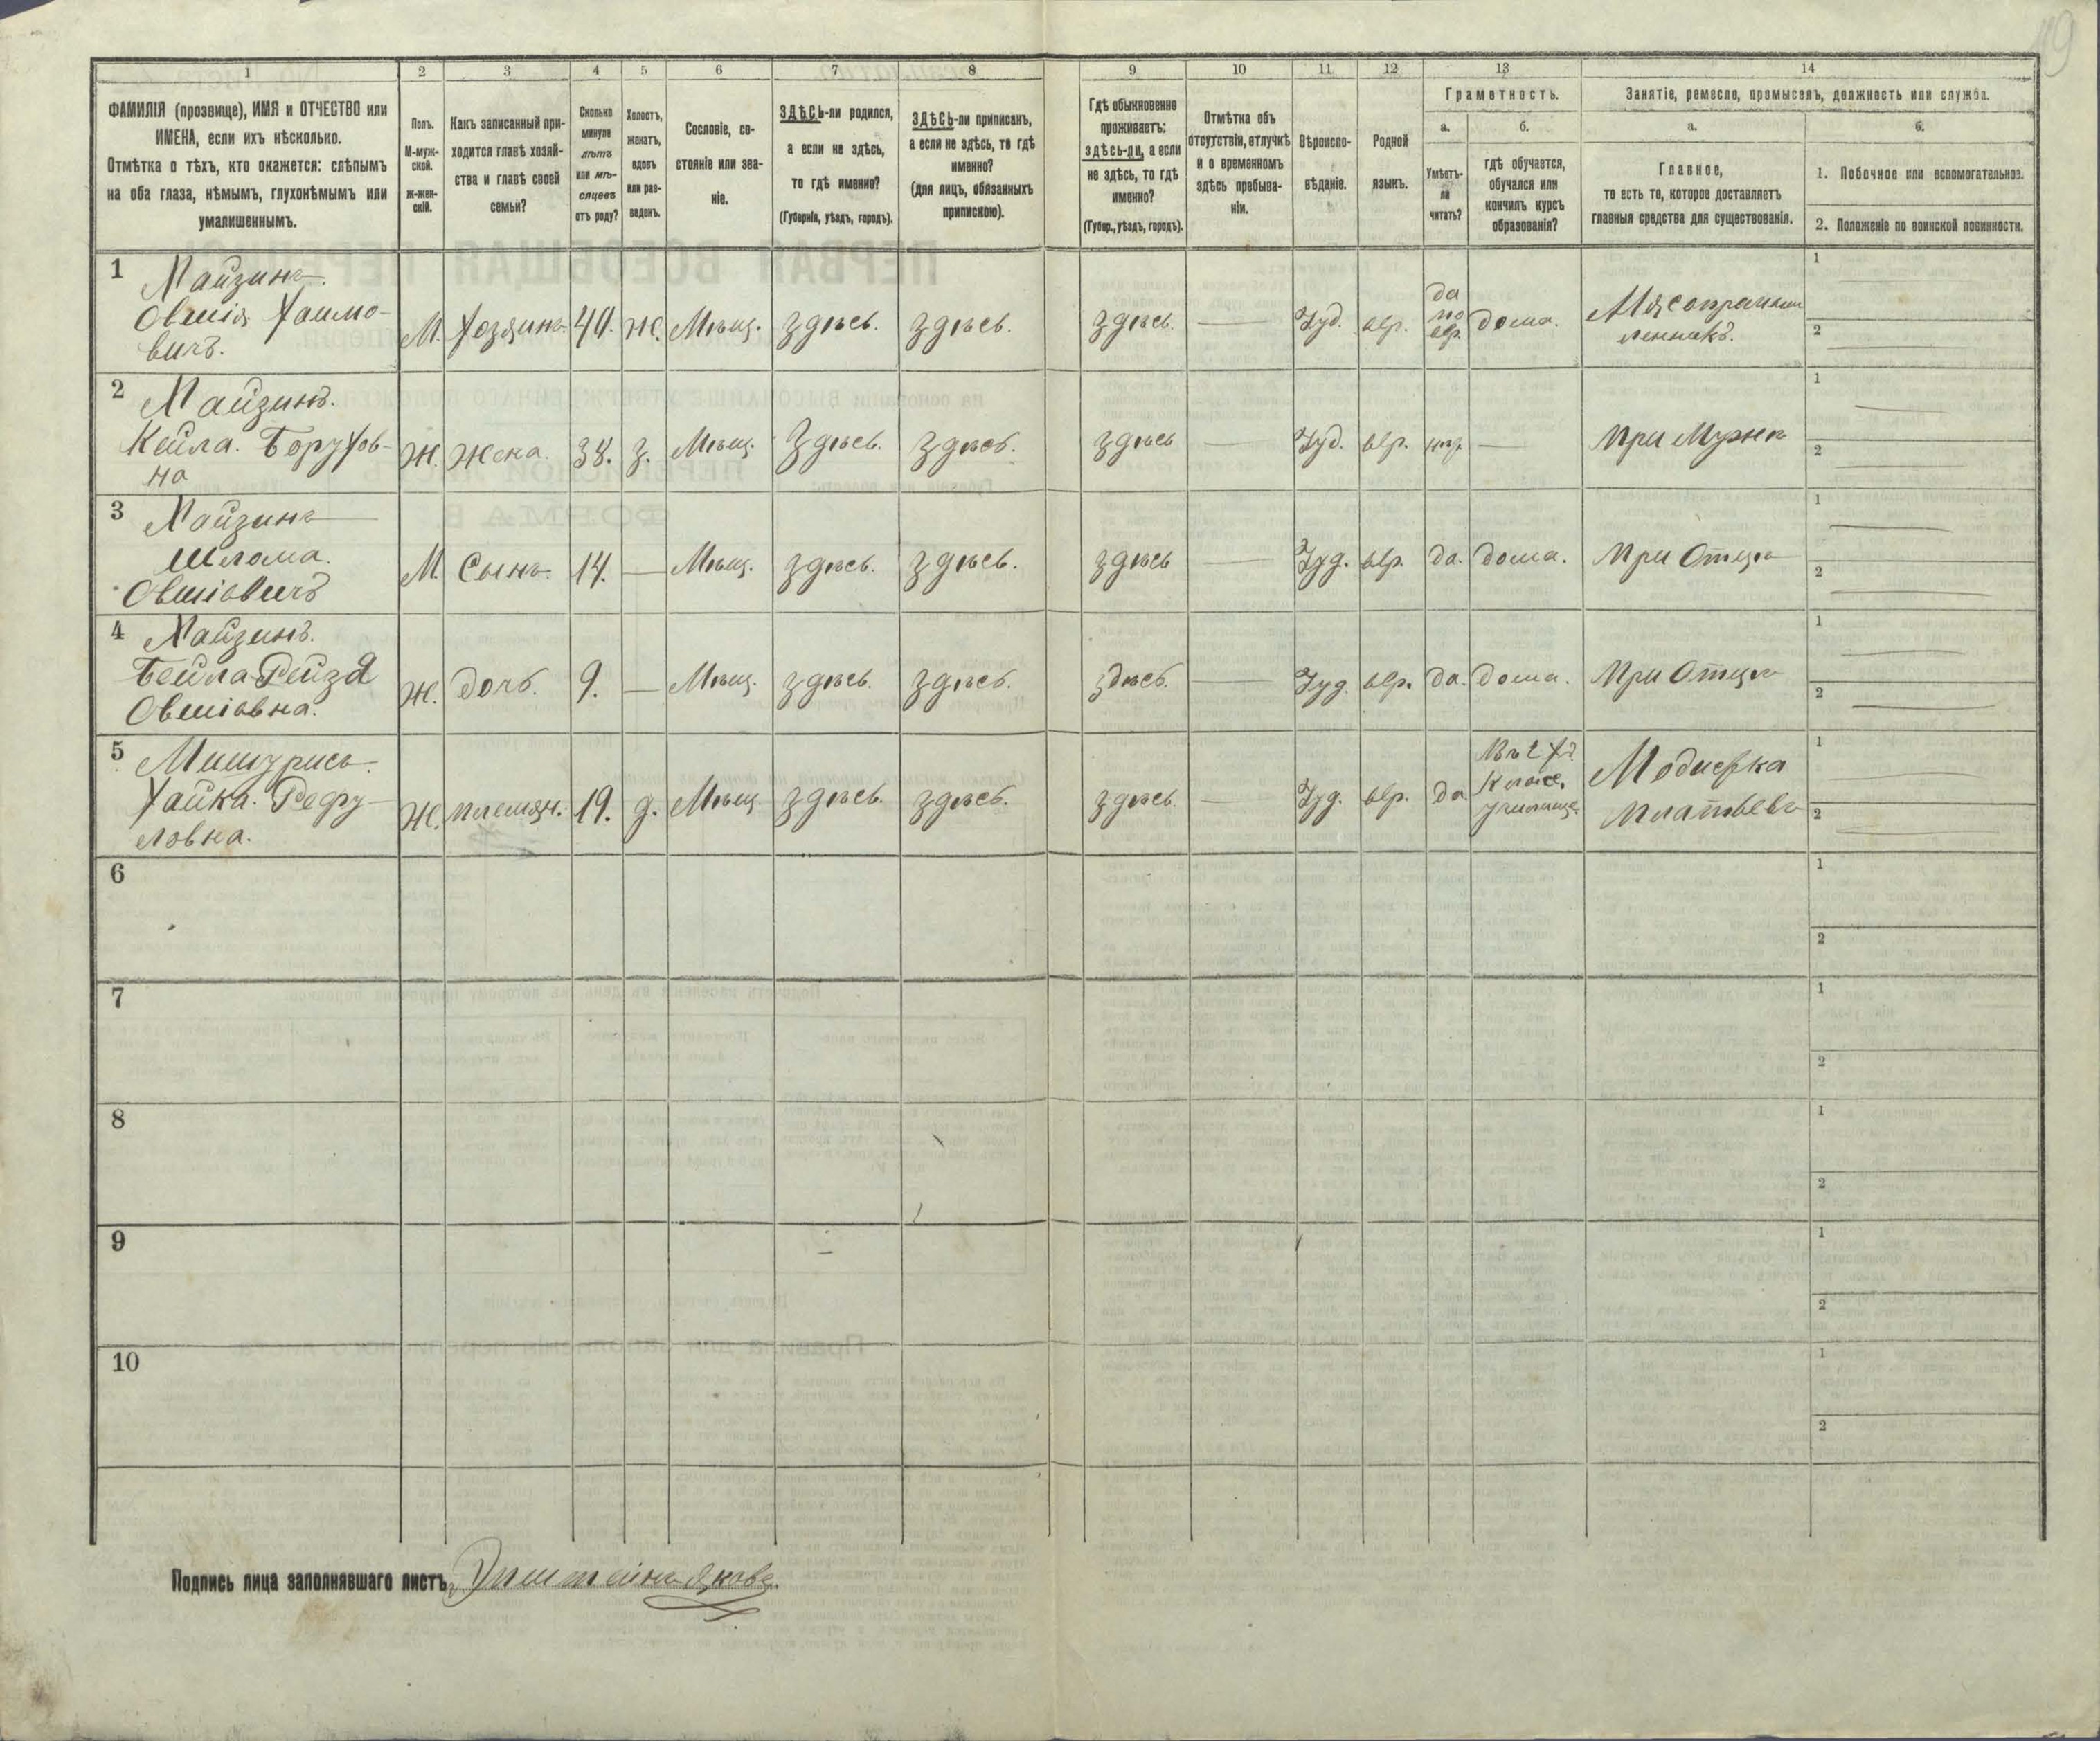 1 2 3 4 5 6 7 8 9 10 11 12 13 14
ФАМИЛІЯ (прозвище), ИМЯ и ОТЧЕСТВО или
ИМЕНА, если ихъ нѣсколько.
Отмѣтка о тѣхъ, кто окажется: слѣпымъ
на оба глаза, нѣмымъ, глухонѣмымъ или
умалишеннымъ.
Полъ.
М-муж-
ской.
Ж-жен-
скій.
Какъ записанный при-
ходится главѣ хозяй-
ства и главѣ своей
семьи?
Сколько
минуло
лѣтъ
или мѣ-
сяцевъ
отъ роду?
Холостъ,
женатъ,
вдовъ
или раз-
веденъ.
Сословіе, со-
стояніе или зва-
ніе.
ЗДѢСЬ-ли родился,
а если не здѣсь,
то гдѣ именно?
(Губернія, уѣздъ, городъ).
ЗДѢСЬ-ли приписанъ,
а если не здѣсь, то гдѣ
именно?
(для лицъ, обязанныхъ
припискою).
Гдѣ обыкновенно
проживаетъ:
здѣсь-ли, а если
не здѣсь, то гдѣ
именно?
(Губер., уѣздъ, городъ).
Отмѣтка объ
отсутствіи, отлучкѣ
и о временномъ
здѣсь пребыва-
ніи.
Вѣроиспо-
вѣданіе.
Родной
языкъ.
Грамотность.
а.
Умѣетъ-
ли
читать?
б.
гдѣ обучается,
обучался или
кончилъ курсъ
образованія?
Занятіе, ремесло, промыселъ, должность или служба.
а.
Главное,
то есть то, которое доставляетъ
главныя средства для существованія.
б.
1. Побочное или вспомогательное.
2. Положеніе по воинской повинности.
1 Майзинъ
Овшія Хаимо-
вичъ.
М. Хозяинъ 44. Ж. Мѣщ. здѣсь. здѣсь. здѣсь. — Іуд. евр. да по евр. дома.
1
2
2 Майзинъ.
Кейла. БоруХов-
на
Ж. Жена. 38. З. Мѣщ. Здѣсь. Здѣсь. здѣсь — Іуд. евр. — При Мужѣ
1
2
3 Майзинъ
Шлома.
Овшіовичъ
М. Сынъ. 14. — Мѣщ. здѣсь. здѣсь. здѣсь — Іуд. евр. да. дома. При Отцѣ
1
2
4 Майзинъ.
Бейла-Рейзя
Овшіовна.
Ж. дочь. 9. — Мѣщ. здѣсь. здѣсь. здѣсь. — Іуд. евр. да. дома. При Отцѣ
1
2
5 Мишурисъ.
Хайка. Рафу-
ловна.
Ж. племян. 19. д. Мѣщ. здѣсь. здѣсь. здѣсь. — Іуд. евр. да
Въ 2 Хъ
Класс.
училище.
Модистка
платьевъ
1
2
6
1
2
7
1
2
8
1
2
9
1
2
10
1
2
Подпись лица заполнявшаго листъ